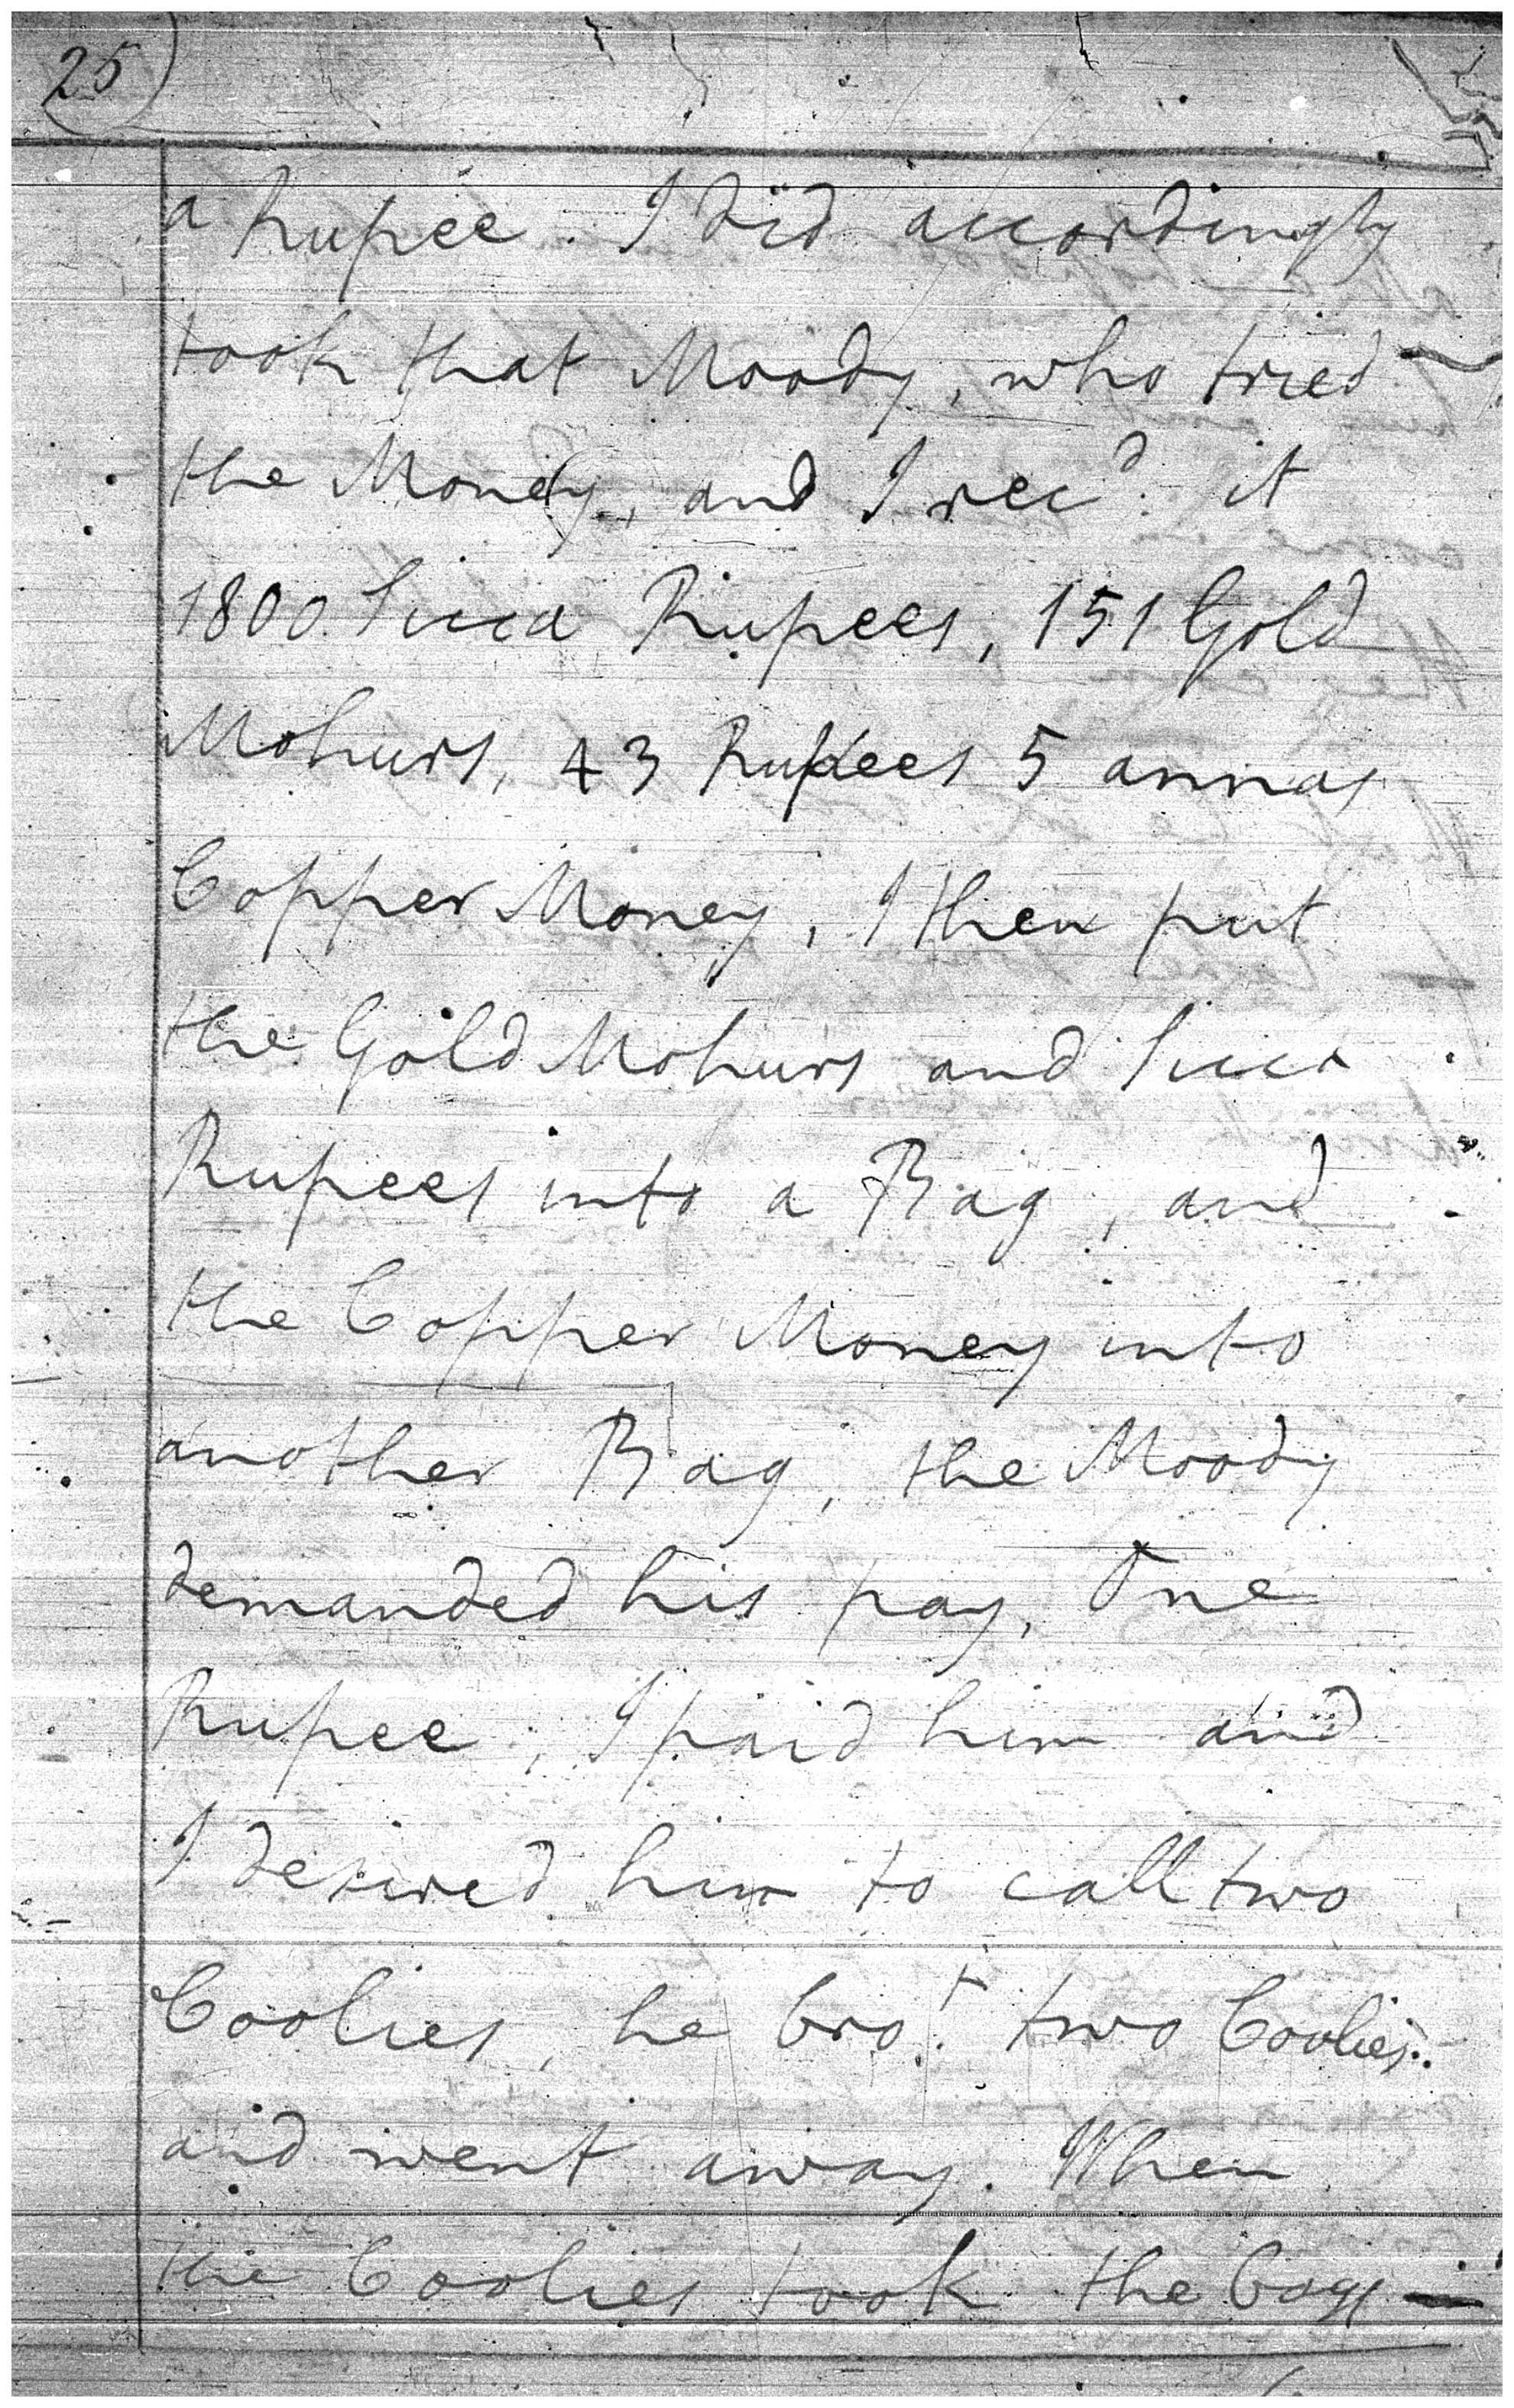 25
a Rupee. I did accordingly
took that Moody, who tried
the Money, and I recd. it
1800 Sicca Rupees, 151 Gold
Mohurs, 43 Rupees 5 annas
Copper Money, I then put
the Gold Mohurs and Sicca
Rupees into a Bag, and
the Copper Money into
another Bag, the Moody
demanded his pay, One
Rupee, I paid him and
I desired him to call two
Coolies, he brot. two Coolies.
and went away. When
the Coolies took the bags